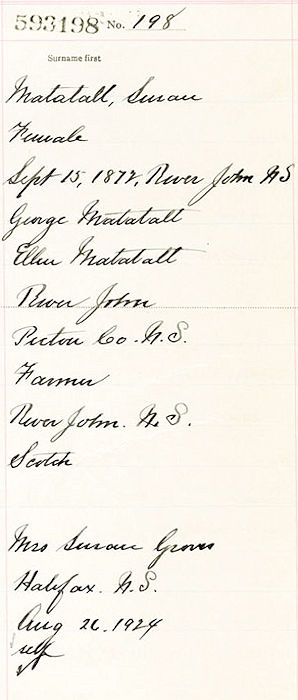 593198 No. 198
Surname first
Matatall, Susan
Female
Sept 15, 1872, River John NS
George Matatall
Ellen Matatall
River John
Pictou Co. N.S.
Farmer
River John. N.S.
Scotch
Mrs Susan Groves
Halifax. N.S.
Aug 26. 1924
self